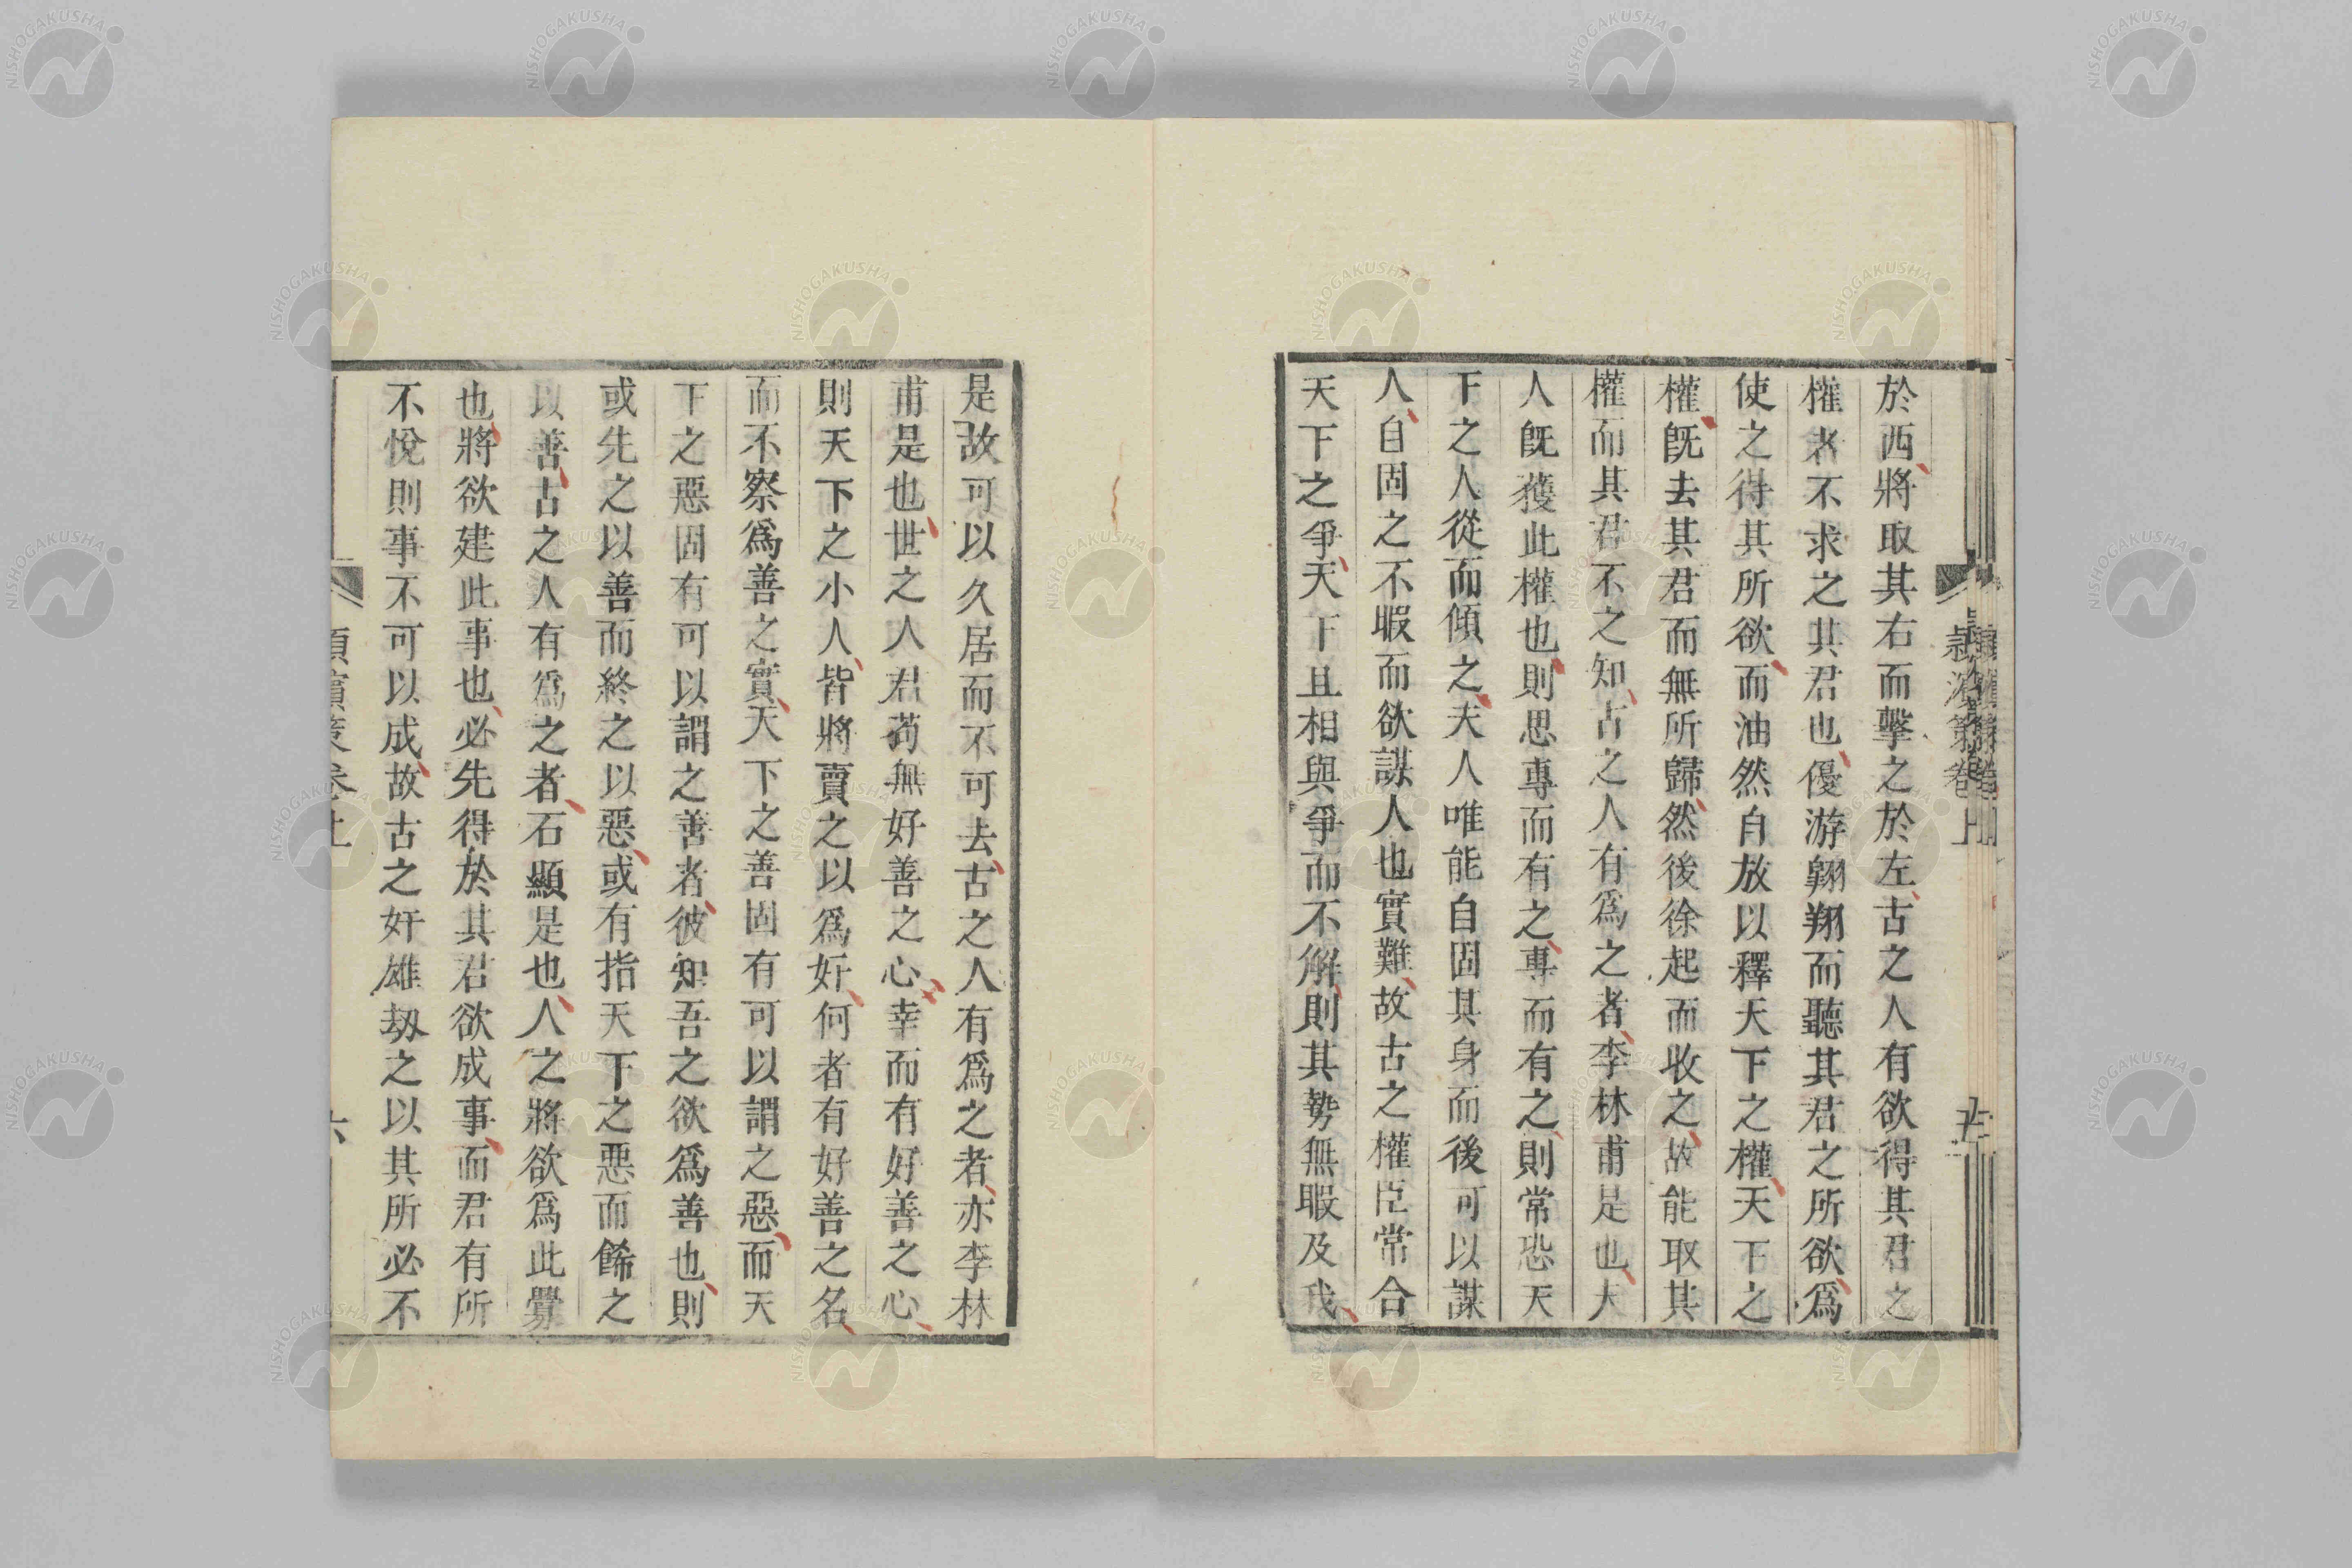 於西將取其右而擊之於左古之人有欲得其君之
權者不求之其君也優游翺翔而聽其君之所欲爲
使之得其所欲而油然自放以釋天下之權天下之
權旣去其君而無所歸然後徐起而收之故能取其
權而其君不之知古之人有爲之者李林甫是也夫
人旣獲此權也則思專而有之專而有之則常恐天
下之人從而傾之夫人唯能自固其身而後可以謀
人自固之不暇而欲謀人也實難故古之權臣常合
天下之爭天下且相與爭而不解則其勢無暇及我
是故可以久居而不可去古之人有爲之者亦李林
甫是也世之人君苟無好善之心幸而有好善之心
則天下之小人皆將賣之以爲奸何者有好善之名
而不察爲善之實天下之善固有可以謂之惡而天
下之惡固有可以謂之善者彼知吾之欲爲善也則
或先之以善而終之以惡或有指天下之惡而餙之
以善古之人有爲之者石顯是也人之將欲爲此釁
也將欲建此事也必先得於其君欲成事而君有所
不悅則事不可以成故古之奸雄劫之以其所必不
六
NISHOGAKUSHA